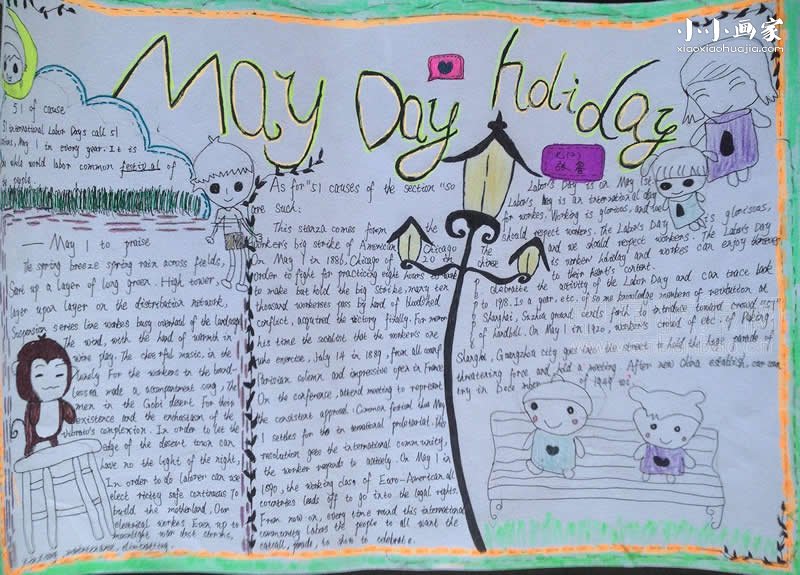 小小画家
xiaoxiaohuajia.com
May Day holiday
51 of cause
51 international Labor Days call 51
May 1 in every year. It is
whole world labor common festival of
people
— May 1 to praise
The spring breeze spring rain across fields,
Start up a layer of long green. High tower,
layer upon layer on the distribution network,
Suspension series line workers busy overhead of the landscape
The wind, with the hand of warmth in
wine play. The cheerful music, in the
lonely For the workers in the
made a accompaniment song, The
men in the Gobi desert for their
existence and the enthusiasm of the
complexion. In order to let the
edge of the desert town can
have no the light of the right,
In order to do laborer can use
electricity safe continuous To
build the motherland, Our
electrical workers Even up to
moonlight star
As for "51 causes of the section "so
are such:
This stanza comes form the
worker's big strike of American Chicago
On May 1 in 1886, Chicago of 20 in
order to fight for practicing eight hours to work
to make but hold the big strike, many ten
thousand workers pass by hard of bloodshed
conflict, acquired the victory finally. For
this time the socialist that the worker's one
who exercise, July 14 in 1889, from all
Parisian solemn and impressive open in France
On the conference, attend meeting to represent
the consistent approval: Common festival thus May
1 settles for the international proletariat. this
resolution gets the international community,
the worker regards to actively. On May 1 in
1890, the working class of Euro-American all
countries leads off to go into the legal rights.
From now on, every time round this international
community labors the people to all want the
parade, to show to celebrate.
Labor's Day is on May 1st
Labor's Day is an international day
for workes. Working is glorious, and we
should respect workers. The Labor's Day is glorious,
The and we should respect workers. The Labor's Day
chinese is worker holiday and workes can enjoy
to their heart's content.
celebrate the activity of the Labor Day and can trace back
to 1918. Is a year, etc. of some knowledge members of revolution at
Shanghai, Suzhou ground sends forth to introduce toward crowd "51"
of handbill. On May 1 in 1920, worker's crowd of etc. of Peking,
Shanghai, Guangzhou city goes into the street to hold the huge parade of
threatening force and hold a meeting. After new China establish,
try in December of 1949